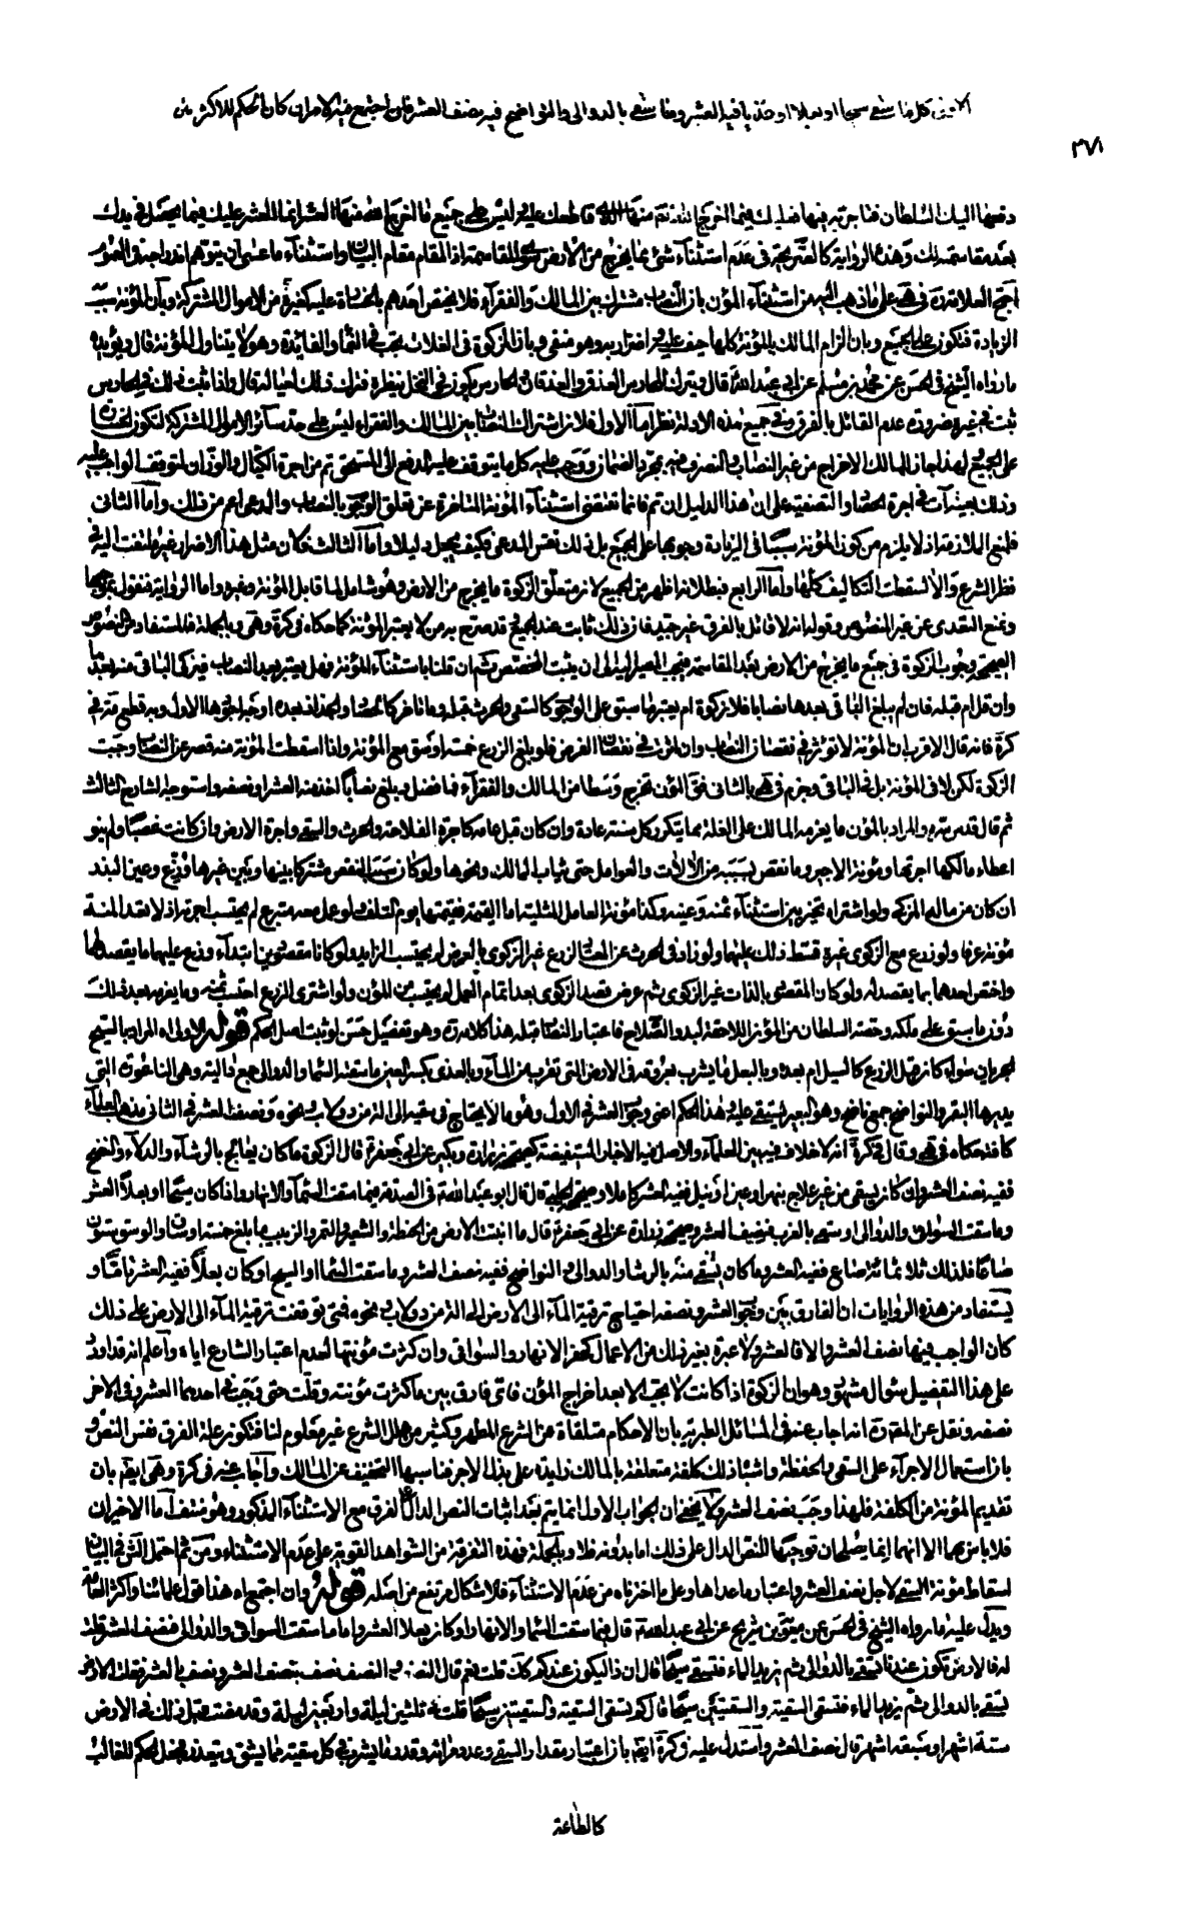 كل ما سقي سيحا او بعلا او عذيا فيه العشر وما سقي بالدوالي والنواضح فيه نصف العشر فان اجتمع فيه الامران كان الحكم للاكثر
٣٧١
دفعها اليك السلطان فما حرثته فيها فعليك فيما اخرج الله منها الذي قاطعك عليه وليس على جميع ما اخرج الله منها العشر انما العشر عليك فيما يحصل في يدك
بعد مقاسمته لك وهذه الرواية كالصريحة في عدم استثناء شئ مما يخرج من الارض سوى المقاسمة اذ المقام مقام البيان واستثناء ما عسى ان يتوهم اندراجه في العموم
احتج العلامة ره في هى على ما ذهب اليه من استثناء المؤن بان النصاب مشترك بين المالك والفقراء فلا يختص احدهم بالخسارة عليه كغيره من الاموال المشتركة وبان المؤنة سبب
الزيادة فتكون على الجميع وبان الزام المالك بالمؤنة كلها حيف عليه واضرار به وهو منفي وبان الزكوة في الغلات تجب في النماء والفائدة وهو لا يتناول المؤنة قال ويؤيده
ما رواه الشيخ في الحسن عن محمد بن مسلم عن ابي عبد الله قال ويترك للحارس العذق والعذقان والحارس يكون في النخل ينظره فيترك ذلك لعياله قال واذا ثبت ذلك في الحارس
ثبت في غيره ضرورة عدم القائل بالفرق وفي جميع هذه الادلة نظر اما الاول فلان اشتراك النصاب بين المالك والفقراء ليس على حد سائر الاموال المشتركة لتكون الخسارة
على الجميع ولهذا جاز للمالك الاخراج من غير النصاب والتصرف فيه بمجرد الضمان ووجب عليه كل ما يتوقف عليه الدفع الى المستحق من اجرة الكيال والوزان لتوقف الواجب عليه
وذلك بعينه آت في اجرة الحصاد والتصفية على ان هذا الدليل ان تم فانما يقتضي استثناء المؤنة المتاخرة عن تعلق الوجوب بالنصاب والمدعى اعم من ذلك واما الثاني
فلمنع الملازمة اذ لا يلزم من كون المؤنة سببا في الزيادة وجوبها على الجميع بل ذلك نفس المدعى فكيف يجعل دليلا واما الثالث فلان مثل هذا الاضرار غير ملتفت اليه في
نظر الشرع والا لسقطت التكاليف كلها واما الرابع فبطلانه اظهر من الجميع لان متعلق الزكوة ما يخرج من الارض وهو شامل لما قابل المؤنة وغيره واما الرواية فنقول بموجبها
ونمنع التعدي عن غير المنصوص وقوله انه لا قائل بالفرق غير جيد فان ذلك ثابت عند الجميع قد صرح به من لا يعتبر المؤنة كما حكاه في كره وهى وبالجملة فالمستفاد من النصوص
الصحيحة وجوب الزكوة في جميع ما يخرج من الارض بعد المقاسمة فيجب المصير اليه الى ان يثبت المخصص ثم ان قلنا باستثناء المؤنة فهل يعتبر بعد النصاب فيزكى الباقي منه بعدها
وان قل ام قبله فان لم يبلغ الباقي بعدها نصابا فلا زكوة ام يعتبر ما سبق على الوجوب كالسقي والحرث قبله وما تاخر كالحصاد والجذاذ بعده اوجه اجودها الاول وبه قطع في
كره فانه قال الاقرب ان المؤنة لا تؤثر في نقصان النصاب وان اثرت في نقصان الفرض فلو بلغ الزرع خمسة اوسق مع المؤنة واذا اسقطت المؤنة منه قصر عن النصاب وجبت
الزكوة لكن لا في المؤنة بل في الباقي وجزم في هى بالثاني فق المؤن تخرج وسطا من المالك والفقراء فما فضل وبلغ نصابا اخذ منه العشر او نصفه واستوجه الشارح الثالث
ثم قال قدس سره والمراد بالمؤن ما يغرمه المالك على الغلة مما يتكرر كل سنة عادة وان كان قبل عامه كاجرة الفلاحة والحرث والسقي واجرة الارض وان كانت غصبا ولم ينو
اعطاء مالكها اجرتها ومؤنة الاجير وما نقص بسببه من الآلات والعوامل حتى ثياب المالك ونحوها ولو كان سبب النقص مشتركا بينها وبين غيرها وزع وعين البذر
ان كان من ماله المزكى ولو اشتراه تخير بين استثناء ثمنه وعينه وكذا مؤنة العامل المثلية اما القيمة فقيمتها يوم التلف ولو عمل معه متبرع لم يحتسب اجرته اذ لا تعد المنة
مؤنة عرفا ولو زرع مع الزكوي غيره قسط ذلك عليهما ولو زاد في الحرث عن المعتاد لزرع غير الزكوي بالعرض لم يحتسب الزايد ولو كانا مقصودين ابتداء وزع عليهما ما يقصد لهما
واختص احدهما بما يقصد له ولو كان المقصود بالذات غير الزكوي ثم عرض قصد الزكوي بعد اتمام العمل لم يحتسب من المؤن ولو اشترى الزرع احتسب ثمنه وما يغرمه بعد ذلك
دون ما سبق على ملكه وحصة السلطان من المؤن اللاحقة لبدو الصلاح فاعتبار النصاب قبله هذا كلامه ره وهو تفصيل حسن لو ثبت اصل الحكم قوله الاولى المراد بالسيح
الجريان سواء كان قبل الزرع كالنيل ام بعده وبالبعل ما يشرب بعروقه في الارض التي تقرب من الماء وبالعذي بكسر العين ما سقته السماء والدوالي جمع دالية وهي الناعورة التي
يديرها البقر والنواضح جمع ناضح وهو البعير يستقى عليه وهذا الحكم اعني وجوب العشر في الاول وهو ما لا يحتاج في سقيه الى آلة من دولاب ونحوه ونصف العشر في الثاني مذهب العلماء
كافة حكاه في هى وقال في كره انه لا خلاف فيه بين العلماء والاصل فيه الاخبار المستفيضة كصحيحة زرارة وبكير عن ابي جعفر ع قال في الزكوة ما كان يعالج بالرشاء والدلاء والنضح
ففيه نصف العشر وان كان يسقى من غير علاج بنهر او عين او نيل ففيه العشر كاملا وصحيحة الحلبي قال قال ابو عبد الله ع في الصدقة فيما سقت السماء والانهار اذا كان سيحا او بعلا العشر
وما سقت السواني والدوالي او سقي بالغرب فنصف العشر وصحيحة زرارة عن ابي جعفر ع قال ما انبتت الارض من الحنطة والشعير والتمر والزبيب ما بلغ خمسة اوساق والوسق ستون
صاعا فذلك ثلاثمائة صاع ففيه العشر وما كان يسقى منه بالرشاء والدوالي والنواضح ففيه نصف العشر وما سقت السماء او السيح او كان بعلا ففيه العشر تاما و
يستفاد من هذه الروايات ان الفارق بين وجوب العشر ونصفه احتياج ترقية الماء الى الارض الى آلة من دولاب ونحوه فمتى توقفت ترقية الماء الى الارض على ذلك
كان الواجب فيها نصف العشر والا فالعشر ولا عبرة بغير ذلك من الاعمال كحفر الانهار والسواقي وان كثرت مؤنتها لعدم اعتبار الشارع اياه واعلم انه قد اورد
على هذا التفصيل سؤال مشهور وهو ان الزكوة اذا كانت لا تجب الا بعد اخراج المؤن فاي فارق بين ما كثرت مؤنته وقلت حتى وجبت في احدهما العشر وفي الاخر
نصفه ونقل عن المص ره انه اجاب عنه في المسائل الطبرية بان الاحكام متلقاة من الشرع المطهر وكثير من علل الشرع غير معلوم لنا فتكون علة الفرق نفس النص و
بان استعمال الاجراء على السقي والحفظة واشباه ذلك كلفة متعلقة بالمالك زايدة على بذل الاجرة فناسبها التخفيف عن المالك واجاب عنه في كره وهى ايضا بان
تقديم المؤنة من الكلفة فلهذا وجب نصف العشر ولا يخفى ان الجواب الاول انما يتم بعد اثبات النص الدال على الفرق مع الاستثناء المذكور وهو منتف اما الاخيران
فلا باس بهما الا انهما انما يصلحان توجيها للنص الدال على ذلك اما بدونه فلا وبالجملة فهذه التفرقة من الشواهد القوية على عدم الاستثناء ومن ثم احتمل الش في البيان
اسقاط مؤنة السقي لاجل نصف العشر واعتبار ما عداها وعلى ما اخترناه من عدم الاستثناء فلا اشكال مرتفع من اصله قوله وان اجتمع اه هذا قول علمائنا واكثر العامة
ويدل عليه ما رواه الشيخ في الحسن عن معوية بن شريح عن ابي عبد الله ع قال فيما سقت السماء والانهار او كان بعلا العشر واما ما سقت السواني والدوالي فنصف العشر قلت
له فالارض تكون عندنا تسقى بالدوالي ثم يزيد الماء فتسقى سيحا قال ان ذا ليكون عندكم كذلك قلت نعم قال النصف والنصف نصف بنصف العشر ونصف بالعشر فقلت الارض
تسقى بالدوالي ثم يزيد الماء فتسقى السقية والسقيتين سيحا قال كم تسقى السقية والسقيتين سيحا قلت في ثلثين ليلة واربعين ليلة وقد مضت قبل ذلك في الارض
ستة اشهر او سبعة اشهر قال نصف العشر واستدل عليه في كره ايضا بان اعتبار مقدار السقي وعدد مراته وقدر ما يشرب في كل سقية مما يشق ويتعذر فجعل الحكم للغالب
كالطاعة